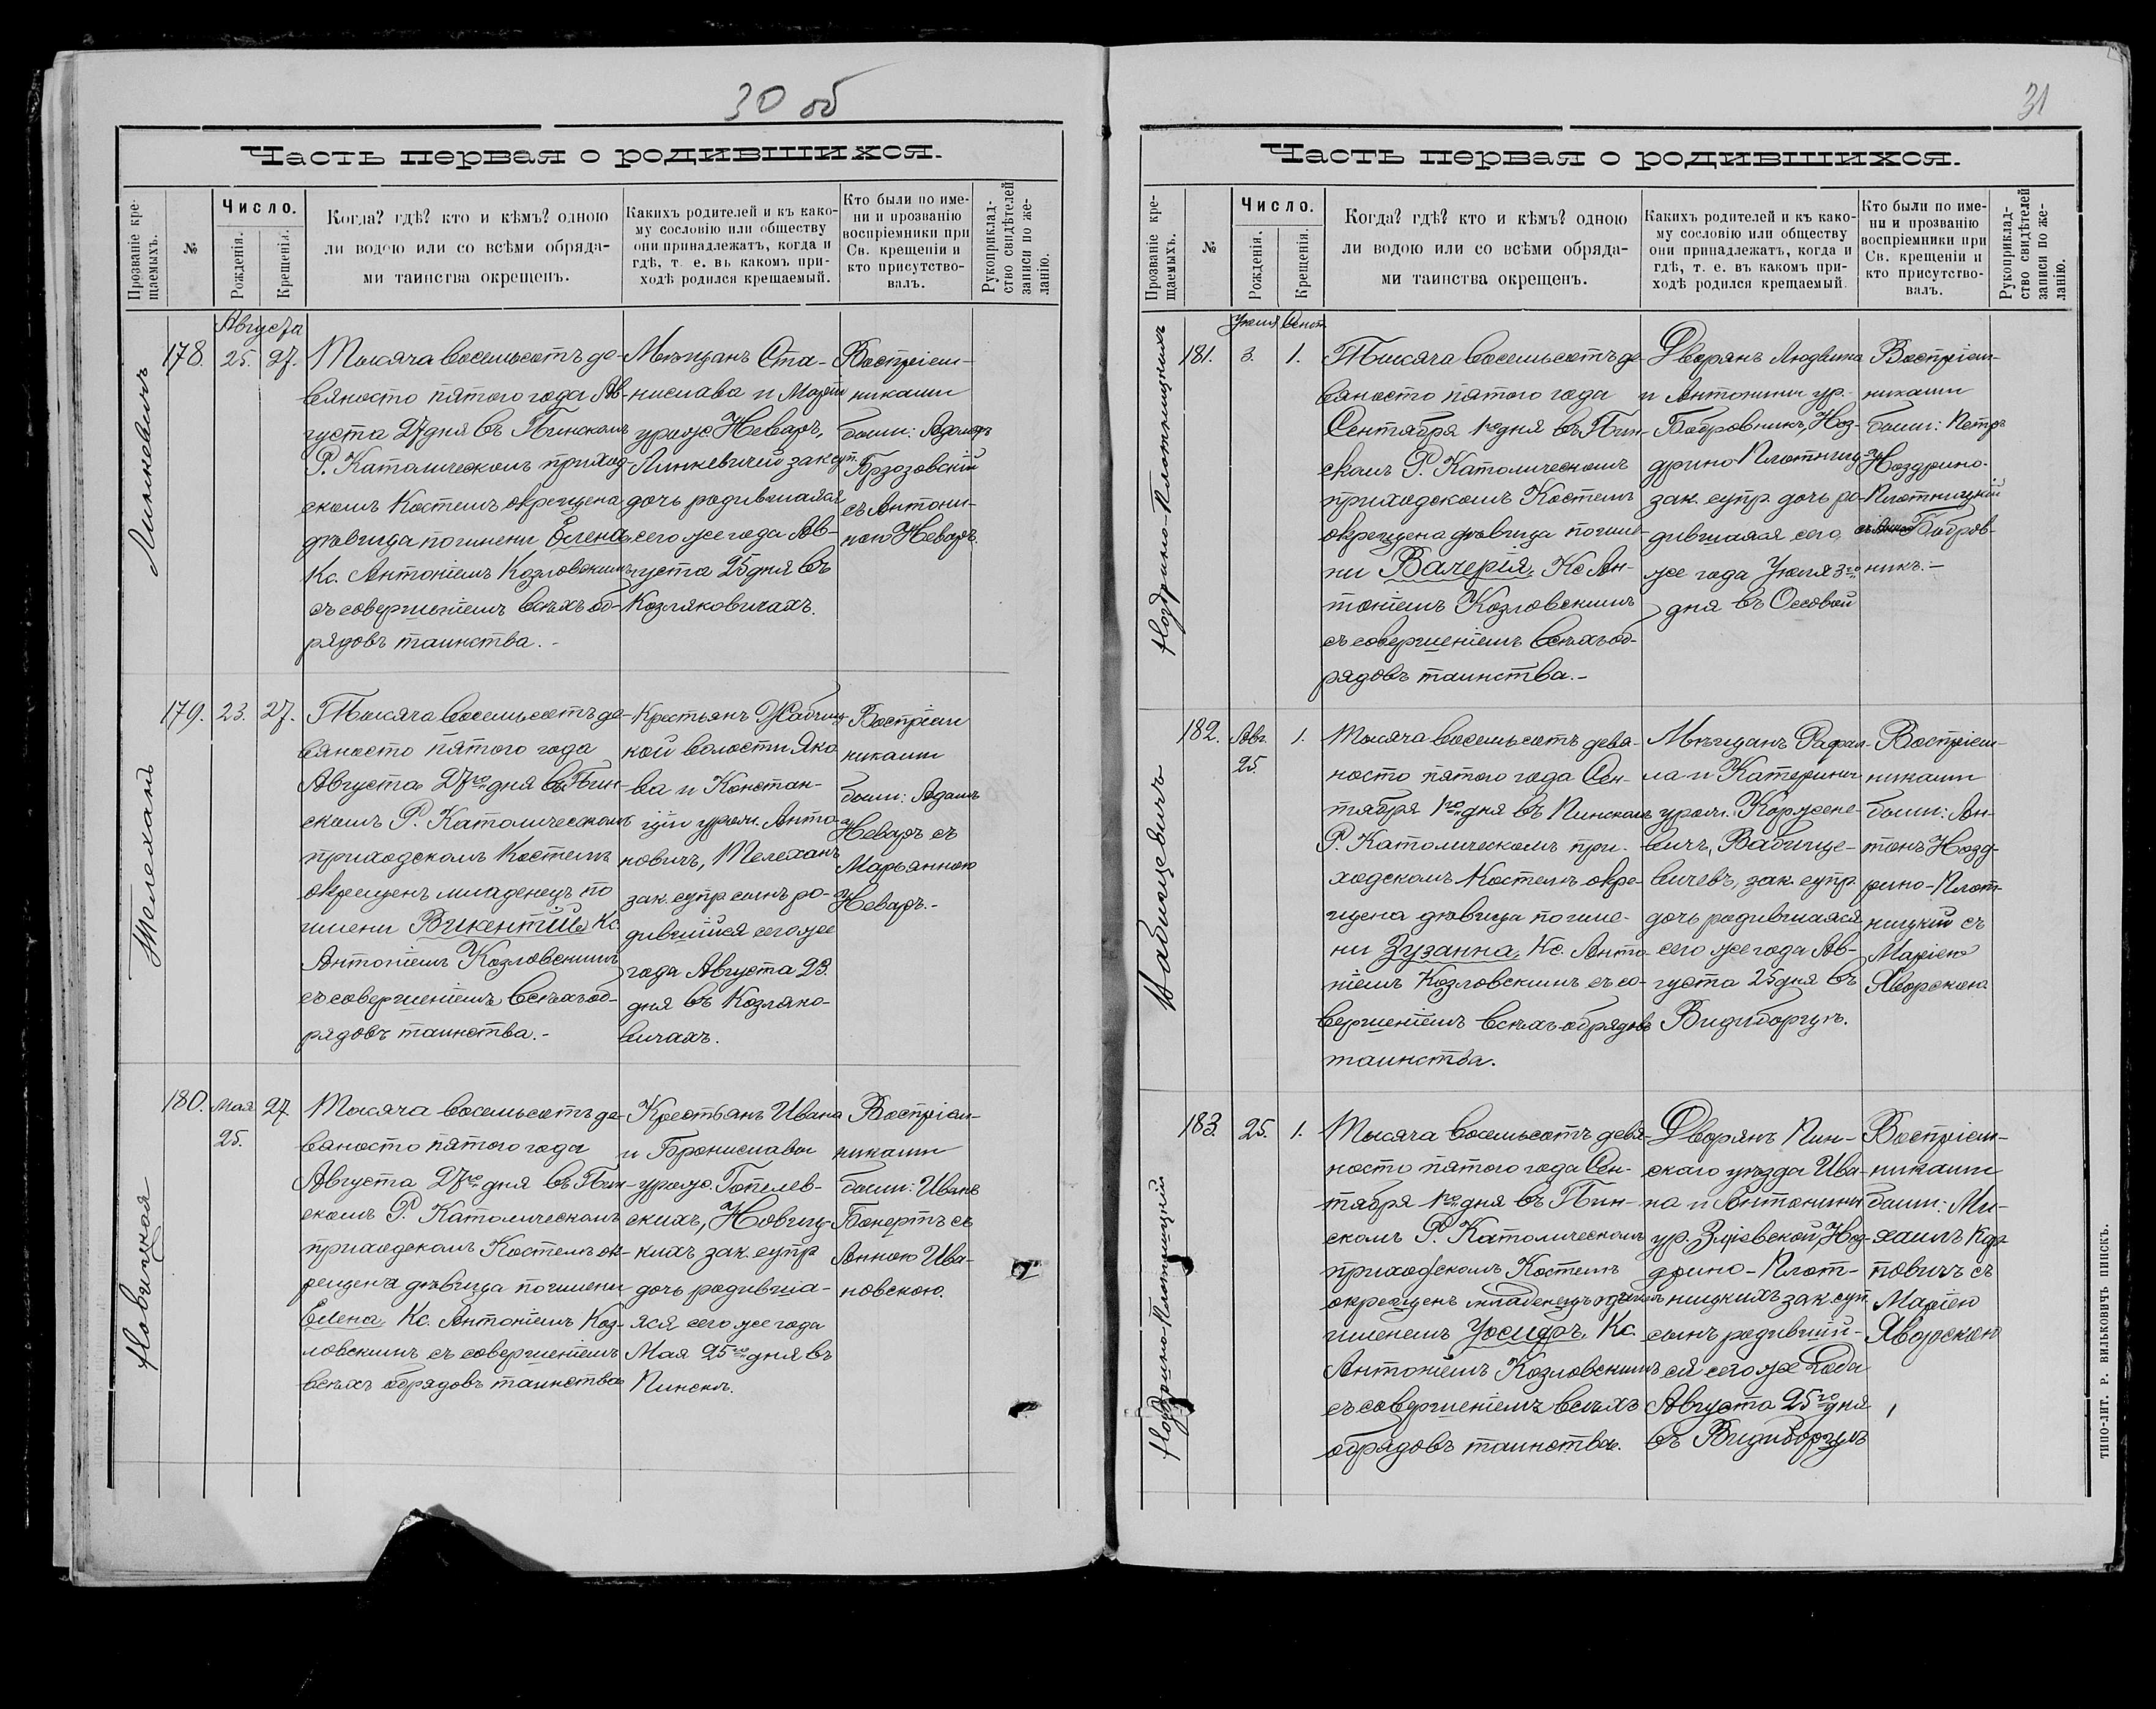 30 об
Часть первая о родившихся.
Прозваніе кре-
щаемыхъ.
№
Число.
Рожденія.
Крещенія.
Когда? гдѣ? кто и кѣмъ? одною
ли водою или со всѣми обряда-
ми таинства окрещенъ.
Какихъ родителей и къ како-
му сословію или обществу
они принадлежатъ, когда и
гдѣ, т. е. въ какомъ при-
ходѣ родился крещаемый.
Кто были по име-
ни и прозванію
воспріемники при
Св. крещеніи и
кто присутство-
валъ.
Рукоприклад-
ство свидѣтелей
записи по же-
ланію.
Линкевичъ
178.
Августа
25. 27.
Тысяча восемьсотъ де-
вяносто пятого года Ав-
густа 27 дня въ Пинскомъ
Р. Католическомъ приход-
скомъ Костелѣ окрещена
дѣвица по имени Елена,
Кс. Антоніемъ Козловскимъ
съ совершеніемъ всѣхъ об-
рядовъ таинства.-
Мѣщанъ Ста-
нислава и Маріи
урожд Неваръ,
Линкевичей зак суп.
дочь родившаяся
сего же года Ав-
густа 25 дня въ
Козляковичахъ.
Воспріем-
никами
были: Адольфъ
Брзозовскій
съ Антони-
ною Неваръ.
Телеханъ
179.
23. 27.
Тысяча восемьсотъ де-
вяносто пятого года
Августа 27го дня въ Пин-
скомъ Р. Католическомъ
приходскомъ Костелѣ
окрещенъ младенецъ по
имени Викентій, Кс.
Антоніемъ Козловскимъ
съ совершеніемъ всѣхъ об-
рядовъ таинства.-
Крестьянъ Жабчиц-
кой волости Яко
ва и Констан-
ціи урож. Анто-
новичъ, Телеханъ
зак. супр сынъ ро-
дившійся сего же
года Августа 23
дня въ Козляко-
вичахъ.
Воспріем
никами
были: Адамъ
Неваръ съ
Марьянною
Неваръ.-
Новицкая
180.
Мая
25.
27
Тысяча восемьсотъ де-
вяносто пятого года
Августа 27го дня въ Пин
скомъ Р. Католическомъ
приходскомъ Костелѣ ок-
рещена дѣвица по имени
Елена, Кс. Антоніемъ Коз-
ловскимъ съ совершеніемъ
всѣхъ обрядовъ таинства
Крестьянъ Ивана
и Брониславы
урожд. Гопелев-
скихъ, Новиц-
кихъ зак. супр
дочь родивша-
яся сего же года
Мая 25го дня въ
Пинскѣ.
Воспріем-
никами
были: Иванъ
Бонертъ съ
Анною Ива-
новскою.
31
Часть первая о родившихся.
Прозваніе кре-
щаемыхъ.
№
Число.
Рожденія.
Крещенія.
Когда? гдѣ? кто и кѣмъ? одною
ли водою или со всѣми обряда-
ми таинства окрещенъ.
Какихъ родителей и къ како-
му сословію или обществу
они принадлежатъ, когда и
гдѣ, т. е. въ какомъ при-
ходѣ родился крещаемый
Кто были по име-
ни и прозванію
воспріемники при
Св. крещеніи и
кто присутство-
валъ.
Рукоприклад-
ство свидѣтелей
записи по же-
ланію.
Ноздрино-Плотницкихъ
181.
Іюля Сент.
3. 1.
Тысяча восемьсотъ де-
вяносто пятого года
Сентября 1го дня въ Пин-
скомъ Р. Католическомъ
приходскомъ Костелѣ
окрещена дѣвица по име-
ни Валерія, Кс Ан-
тоніемъ Козловскимъ
съ совершеніемъ всѣхъ об-
рядовъ таинства.-
Дворянъ Людвика
и Антонины ур.
Бобровникъ, Ноз-
дрино Плотниц-
зак. супр дочь ро-
дившаяся сего
же года Іюля 3го
дня въ Оссовой
Воспріем-
никами
были: Петръ
Ноздрино-
Плотницкій
Бобров-
никъ.-
Бабицевичъ
182.
Авг.
25.
1.
Тысяча восемьсотъ девя-
носто пятого года Сен-
тября 1го дня въ Пинскомъ
Р. Католическомъ при-
ходскомъ Костелѣ окре-
щена дѣвица по име-
ни Зузанна, Кс. Анто-
ніемъ Козловскимъ съ со-
вершеніемъ всѣхъ обрядовъ
таинства.
Мѣщанъ Рафаи-
ла и Катерины
урож. Коржене-
вичъ, Бабице-
вичевъ, зак. супр
дочь родившаяся
сего же года Ав-
густа 25 дня въ
Видиборцѣ.
Воспріем-
никами
были: Ан-
тонъ Нозд-
рино-Плот-
ницкій съ
Маріею
Яворскою
Ноздрино-Плотницкій
183.
25. 1.
Тысяча восемьсотъ девя-
носто пятого года Сен-
тября 1го дня въ Пин-
скомъ Р. Католическомъ
приходскомъ Костелѣ
окрещенъ младенецъ однимъ
именемъ Іосифъ, Кс.
Антоніемъ Козловскимъ
съ совершеніемъ всѣхъ
обрядовъ таинства.
Дворянъ Пин-
скаго уѣзда Ива-
на и Антонины
ур. Зціевской, Ноз-
дрино-Плот-
ницкихъ зак. суп.
сынъ родивший-
ся сего же года
Августа 25го дня
въ Видиборцѣ
Воспріем-
никами
были: Ми-
хаилъ Кар
повичъ съ
Маріею
Яворскою
ТИПО-ЛИТ. Р. ВИЛЬКОВИЧЪ ПИНСКЪ.